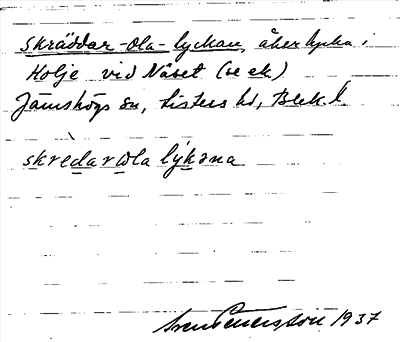 Skräddar-Ola-lyckan, åkerlycka i
Holje vid Näset (se ek)
Jämshögs sn, Listers hd, Blek. l.
skrèdarola lýkəna
Sven Petersson 1937